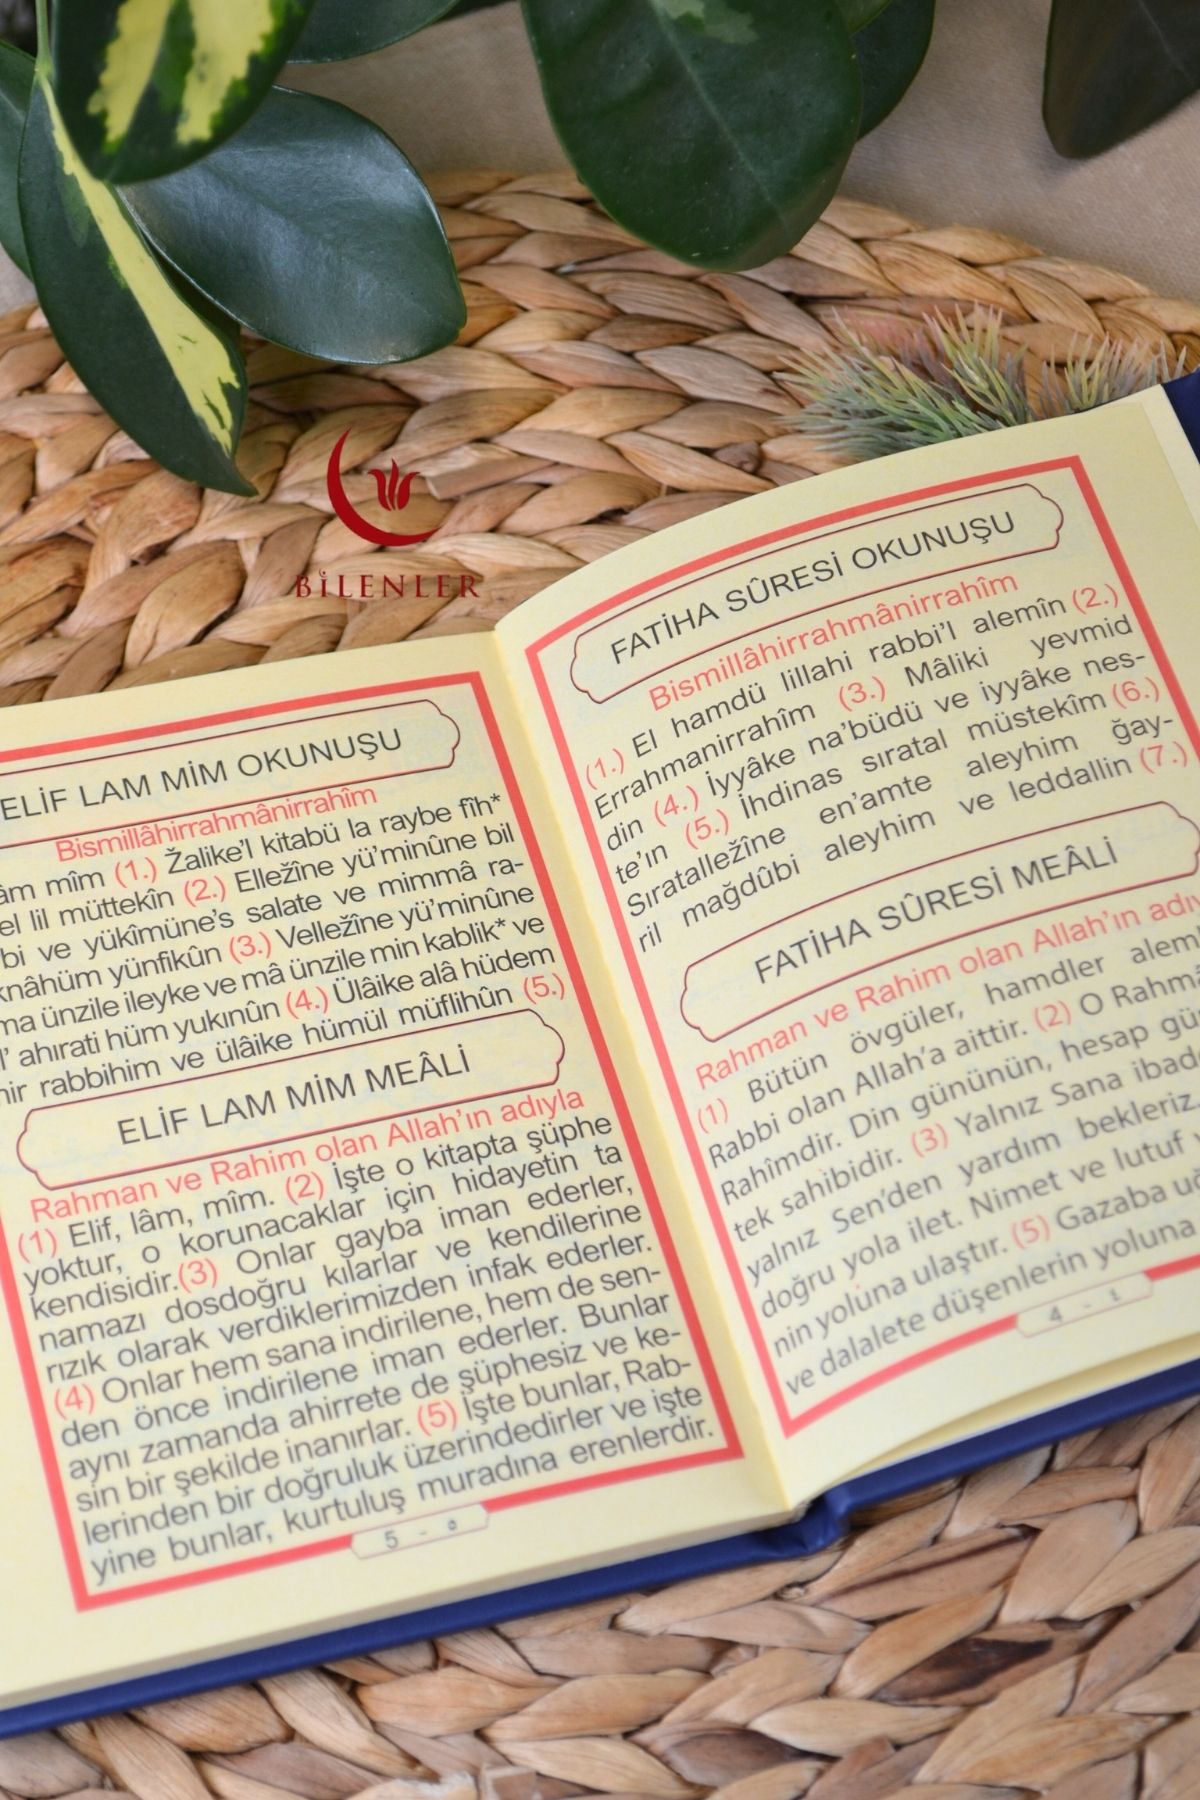 BİLENLER
FATİHA SÛRESİ OKUNUŞU
Bismillâhirrahmânirrahîm
(1.) El hamdü lillahi rabbi'l alemîn (2.)
Errahmanirrahîm (3.) Mâliki yevmid
din (4.) İyyâke na'büdü ve iyyâke nes-
te'ın (5.) İhdinas sıratal müstekîm (6.)
Sıratalležîne en'amte aleyhim ğay-
ril mağdûbi aleyhim ve leddallin (7.)
FATİHA SÛRESİ MEÂLİ
Rahman ve Rahim olan Allah'ın
(1) Bütün övgüler, hamdler
Rabbi olan Allah'a aittir. (2) O
Rahîmdir. Din gününün, hesap
tek sahibidir. (3) Yalnız Sana
yalnız Sen'den yardım bekleriz.
doğru yola ilet. Nimet ve lutuf
nin yoluna ulaştır. (5) Gazaba
ve dalalete düşenlerin yoluna
4 - ٤
ELİF LAM MİM OKUNUŞU
Bismillâhirrahmânirrahîm
mîm (1.) Žalike'l kitabü la raybe fîh*
lil müttekîn (2.) Elležîne yü'minûne bil
ve yükîmüne's salate ve mimmâ ra-
yünfikûn (3.) Velležîne yü'minûne
ünzile ileyke ve mâ ünzile min kablik* ve
ahırati hüm yukınûn (4.) Ülâike alâ hüdem
rabbihim ve ülâike hümül müflihûn (5.)
ELİF LAM MİM MEÂLİ
Rahman ve Rahim olan Allah'ın adıyla
(1) Elif, lâm, mîm. (2) İşte o kitapta şüphe
yoktur, o korunacaklar için hidayetin ta
kendisidir.(3) Onlar gayba iman ederler,
namazı dosdoğru kılarlar ve kendilerine
rızık olarak verdiklerimizden infak ederler.
(4) Onlar hem sana indirilene, hem de sen-
den önce indirilene iman ederler. Bunlar
aynı zamanda ahirrete de şüphesiz ve ke-
sin bir şekilde inanırlar. (5) İşte bunlar, Rab-
lerinden bir doğruluk üzerindedirler ve işte
yine bunlar, kurtuluş muradına erenlerdir.
5 - ٥